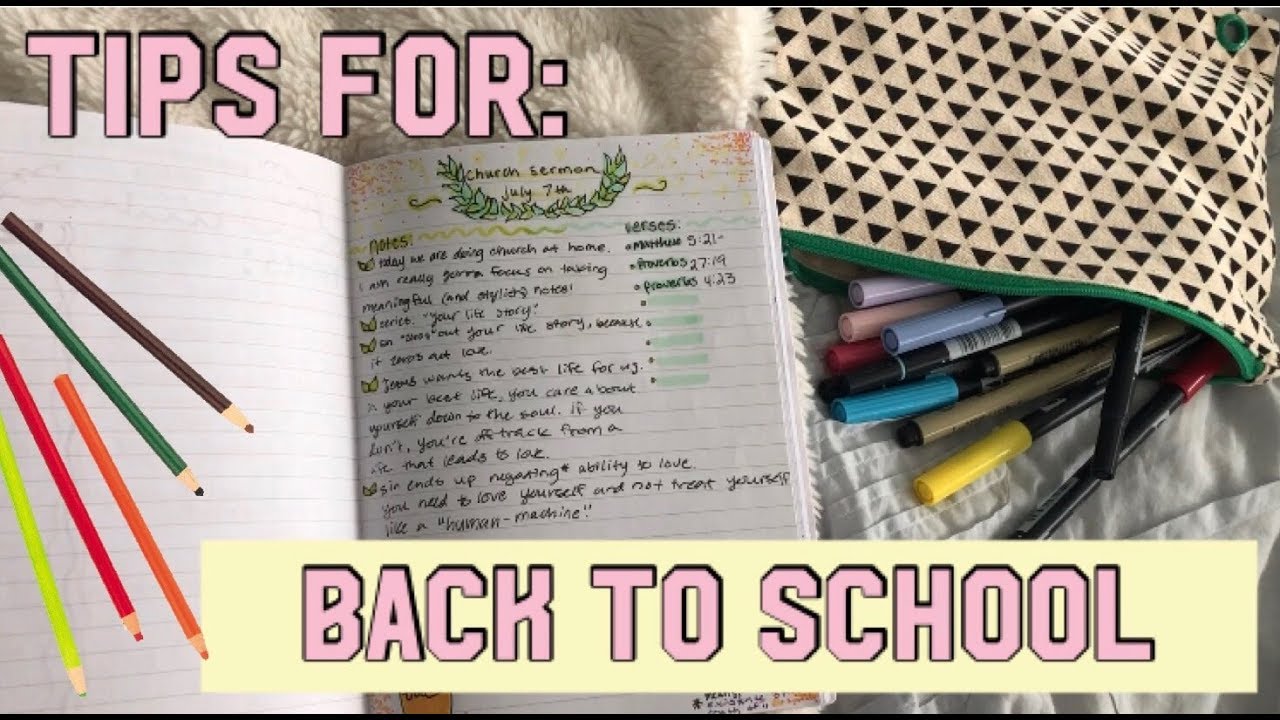 TIPS FOR:
church sermon
july 7th
notes:
today we are doing church at home.
I am really gonna focus on taking
meaningful (and stylish) notes!
series: "your life story"
sin out your life story, because
it zeros out love.
Jesus wants the best life for us.
your best life, you care about
yourself down to the soul. if you
don't, you're off track from a
life that leads to love.
sin ends up negating* ability to love.
you need to love yourself and not treat yourself
like a "human-machine".
verses:
Matthew 5:21-
Proverbs 27:19
proverbs 4:23
BACK TO SCHOOL